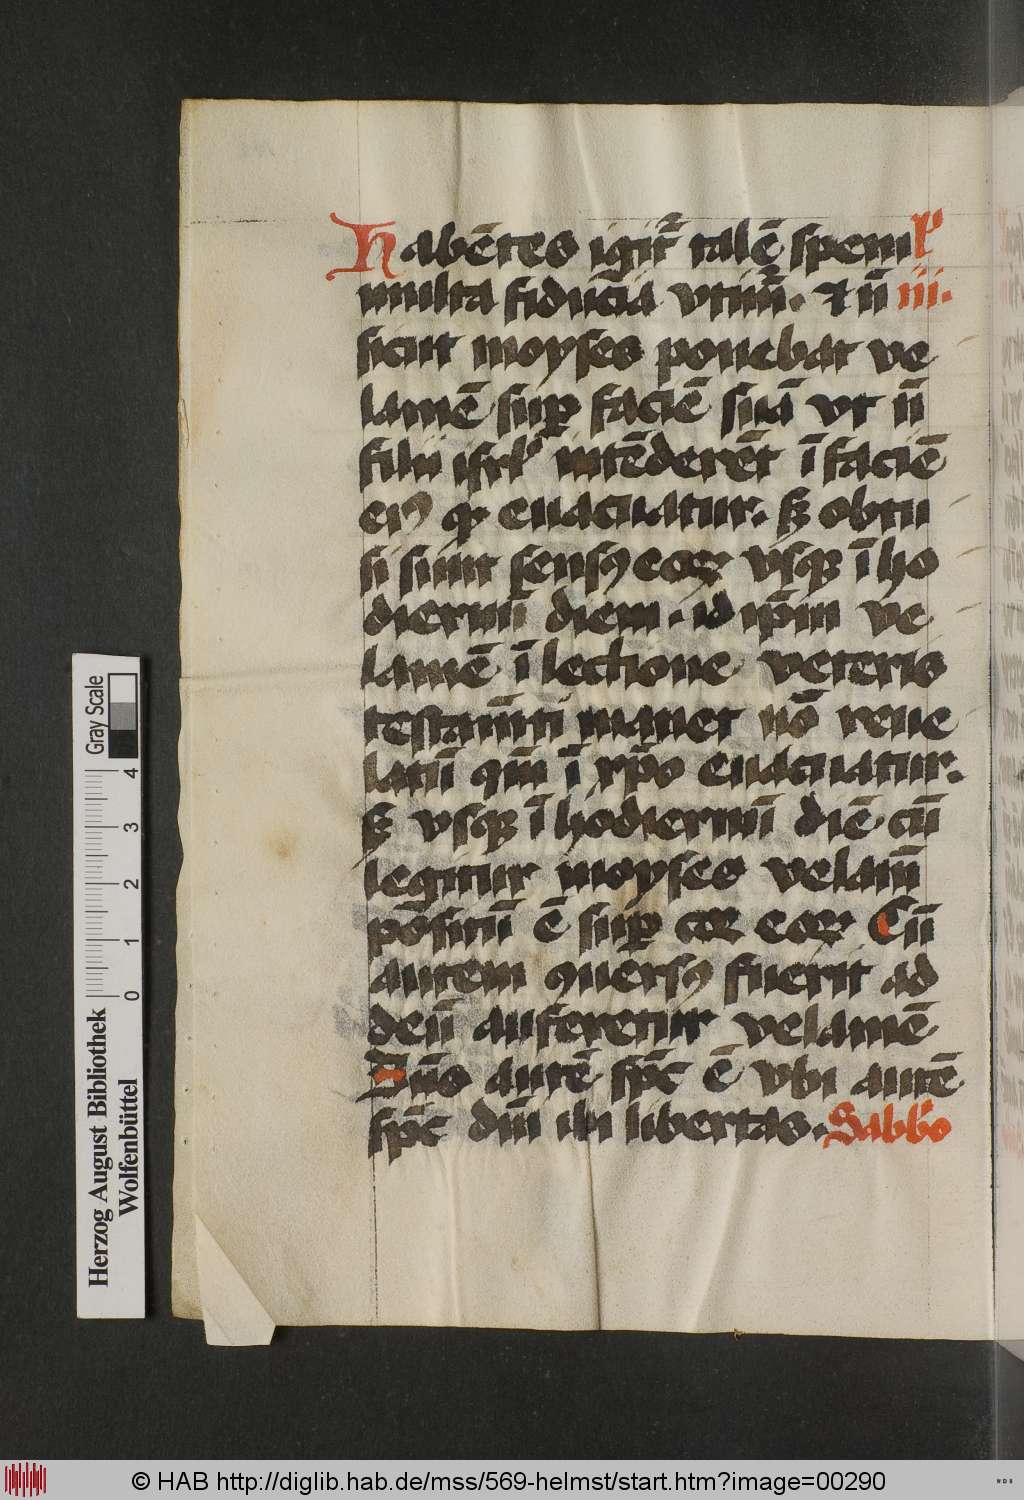 Habētes igit᷑ talē spem l͛
multa fiducia vtim᷑. ⁊ nō iii.
sicut moyses ponebat ve
lamē sup faciē suā vt nō
filii isrl͛ intēderēt ī faciē
eiꝰ qͥ euacuatur. sꝫ obtu
si sunt sensꝰ eoꝝ vsqꝫ ī ho
diernū diem. id ip̄m ve
lamē ī lectione veteris
testam̄ti manet nō reue
latū qm̄ ī xp̄o euacuatur.
sꝫ vsqꝫ ī hodiernū diē cū
legitur moyses velam̄
positū ē sup coꝝ eoꝝ Cū
autem ꝯuersꝰ fuerit ad
deū auferetur velamē
Dn̄s autē sp̄c ē vbi autē
sp̄c dn̄i ibi libertas. Sabb̄o
Gray Scale
4
3
2
1
0
Herzog August Bibliothek
Wolfenbüttel
© HAB http://diglib.hab.de/mss/569-helmst/start.htm?image=00290